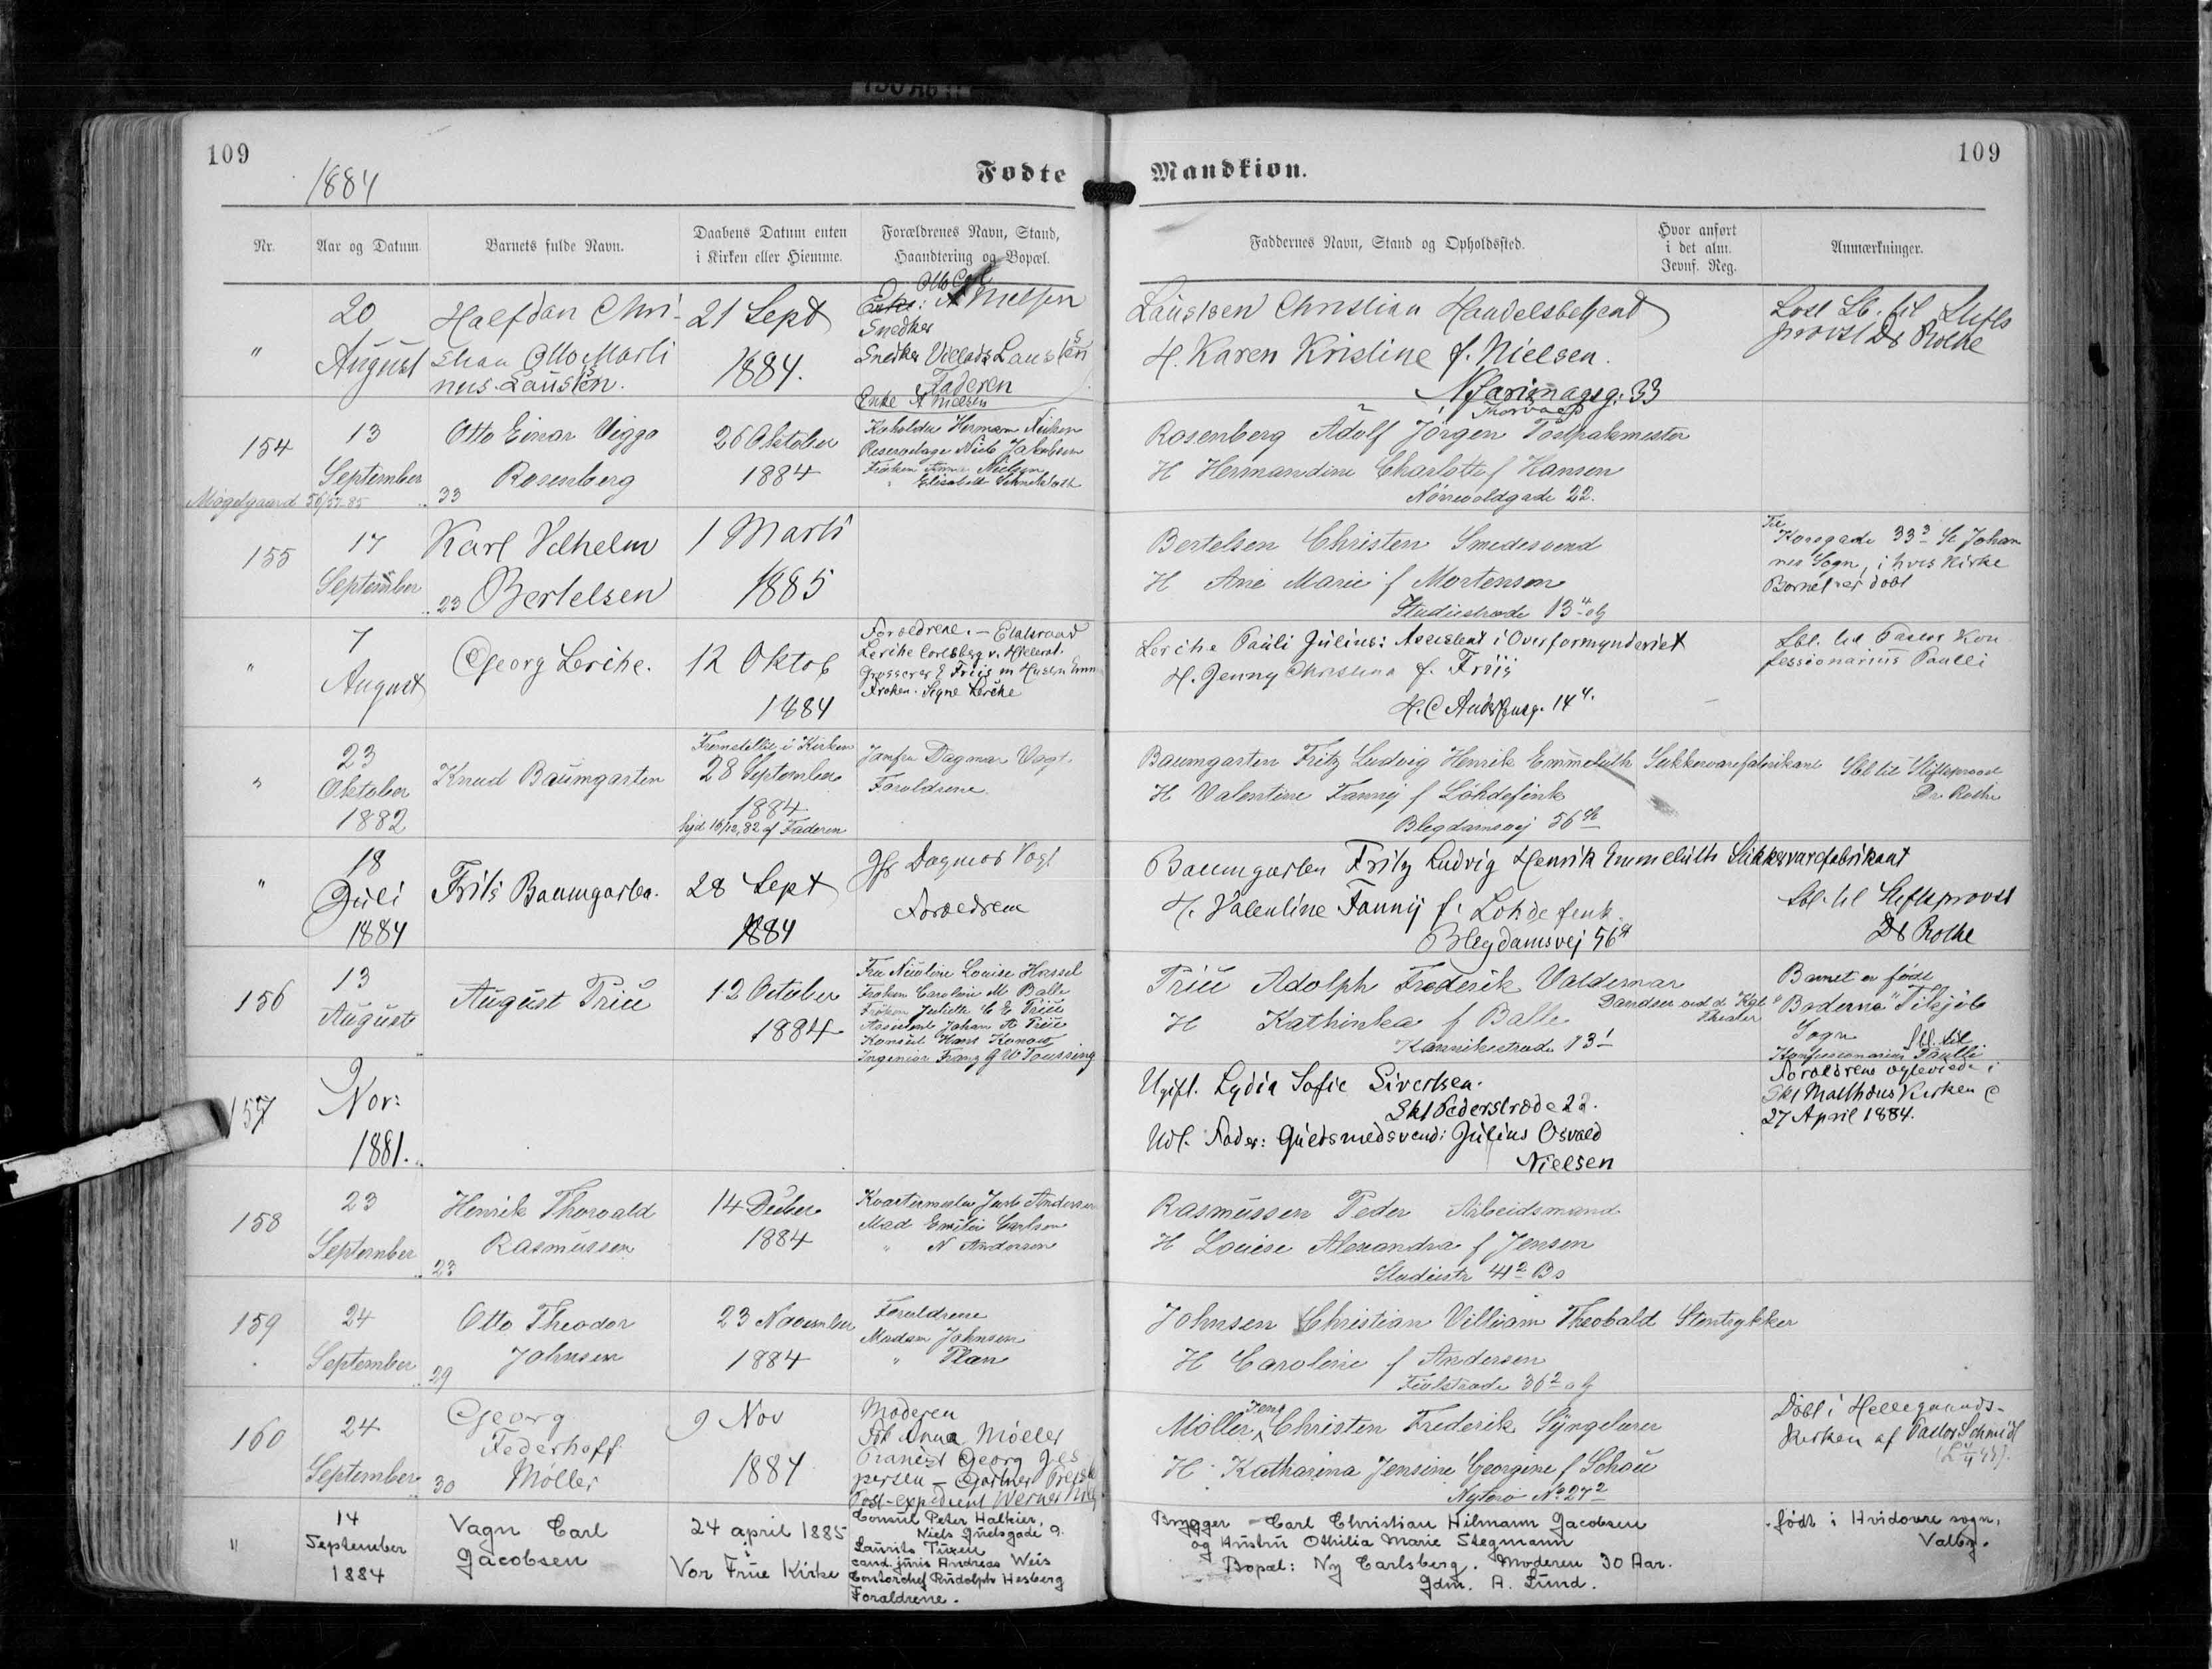 109
109
1884
Fødte
Mandkiøn.
Nr.
Aar og Datum
Barnets fulde Navn.
Daabens Datum enten
i Kirken eller Hiemme.
Forældrenes Navn, Stand,
Haandtering og Bopæl.
Faddernes Navn, Stand og Opholdssted.
Hvor anført
i det alm.
Jevnf. Reg.
Anmærkninger.
"
20
August
Halfdan Chri-
stian Otto Marti
nus Laustsen.
21 Sept
1884.
Otto Carl
Nielsen
Snedker
Snedker Villads Laustsen
Faderen
Enke A Nielsen
Laustsen Christian Handelsbetjent
H. Karen Kristine f. Nielsen.
N Farimagsg. 33
Sbl. til Stifts
provst Dr Rothe
154
13
September
Møgelgaard 56/57-85
Otto Einar Viggo
Rosenberg
33
26 Oktober
1884
Herman Nielsen
Reservelæge Niels Jakobsen
Frøken Anna Nielsen
" Elisabeth
Thorvald
Rosenberg Adolf Jörgen Postpakmester
H Hermandine Charlotte f Hansen
Nörrevoldgade 22.
155
17
September
Karl Vilhelm
23 Bertelsen
1 Marts
1885
Bertelsen Christen Smedesvend
H Ane Marie f Mortensen
Studiestræde 13
Til
Korsgade 33 3 St Johan
nes Sogn, i hvis Kirke
Barnet er døbt
"
7
August
Georg Lerche.
12 Oktob
1884
Forældrene. - Etatsraad
Lerche Carlsberg v. Hillerød.
Grosserer E Friis m Hustru Emma
Frøken Signe Lerche
Lerche Pauli Julius: Assistent i Overformynderiet
H. Jenny Christina f. Friis
H. C Andersensg. 14 4.
Sbl. til Pastor Kon
fessionarius Paulli
"
23
Oktober
1882
Knud Baumgarten
Fremstillet i Kirken
28 September
1884
hjd 16/12, 82 af Faderen
Jomfru Dagmar Vogt
Forældrene
Baumgarten Fritz Ludvig Henrik Emmeluth Sukkervarefabrikant
H Valentine Fanny f Löhdefink
Blegdamsvej 56 St
Sbl til Stiftsprovst
Dr Rothe
"
18
Juli
1884
Frits Baumgarten.
28 Sept
1884
Jfr Dagmar Vogt
Forældrene
Baumgarten Fritz Ludvig Henrik Emmeluth Sukkervarefabrikant
H. Valentine Fanny f. Lohdefink.
Blegdamsvej 56 st
Sbl. til Stiftsprovst
Dr Rothe
156
13
August
August Priu
12 October
1884
Fru Nicoline Louise Hassel
Frøken Caroline M Balle
Frøken Juliette C E Price
Assistent Johan A Price
Konsul Hans Konow
Ingeniør Franz G W Toussieng
Price Adolph Frederik Valdemar
Dandser ved d Kgl.
Theater
H Kathinka f Balle
Kannikestræde 13 1
Barnet er født
Sogn Sbl. til
Konfessionarius Paulli
157
9
Nov:
1881.
Ugift. Lydia Sofie Sivertsen.
Skt Pederstræde 22.
Udl. Fader: Guldsmedsvend: Julius Osvald
Nielsen
Forældrene ægteviede i
Skt Matthæus Kirken d
27 April 1884.
158
23
September
Henrik Thorvald
Rasmussen
23
14 Decber
1884
Kvartermester Andersen
Mad Emilie Carlsen
" N Andersen
Rasmussen Peder Arbeidsmand
H Louise Alexandra f Jensen
Studiestr 41 2 Bs
159
24
September
Otto Theodor
Johnsen
29
23 November
1884
Forældrene
Madam Johnsen
" Plan
Johnsen Christian Villiam Theobald Stentrykker
H Caroline f Andersen
Fiolstræde 36 2
160
24
September
Georg
Federhoff
30 Møller
9 Nov
1884
Moderen
Frk Anna Møller
Branc. Georg Jes
persen - Gartner
Post-expedient Werner
Möller, Jens Christen Frederik Syngelærer
H. Katharina Jensine Georgine f Schou
Nytorv No 27 2
Døbt i Helligaands-
kirken af Pastor Schmidt
"
14
September
1884
Vagn Carl
Jacobsen
24 april 1885
i
Vor Frue Kirke
Consul Peter Halkier,
Niels Juelsgade 9.
Laurits Tuxen
cand. juris Andreas Weis
Contorchef Rudolph Hesberg
Forældrene.
Brygger - Carl Christian Hilmann Jacobsen
og Hustru Othilia Marie Stegmann
Bopæl: Ny Carlsberg. Moderen 30 Aar.
Gdm. A. Lund.
født i Hvidovre sogn,
Valby.